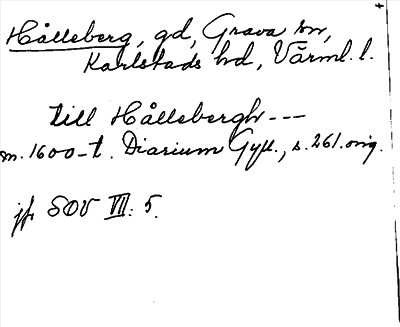 Hålleberg, gd, Grava sn,
Karlstads hd, Värml. l.
till Hållebergh ---
m. 1600-t. Diarium Gyll., s. 261. orig.
jfr SOV VII: 5.